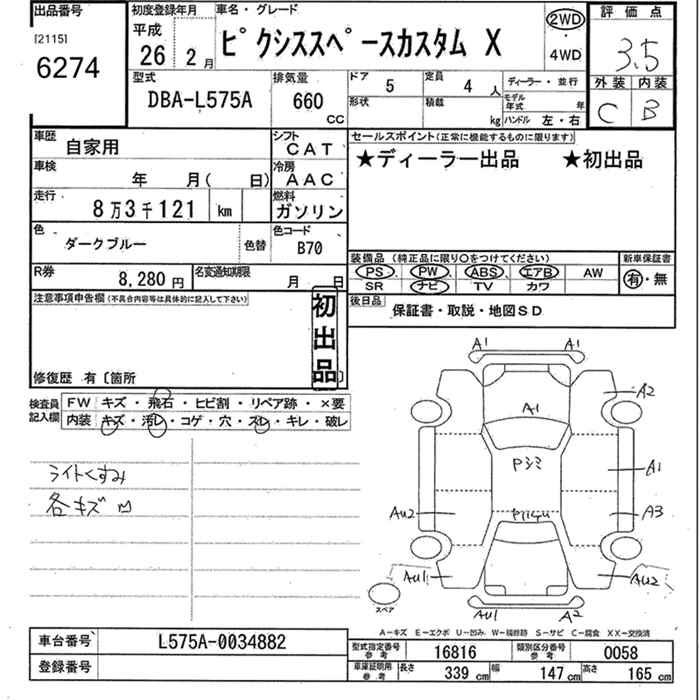 出品番号
[2115]
6274
初度登録年月
平成
26 2月
車名・グレード
ピクシススペースカスタム X
2WD
・
4WD
評価点
3.5
外装 内装
C B
型式
DBA-L575A
排気量
660
CC
ドア
5
定員
4 人
形状
積載
kg
ディーラー・並行
モデル年式 年
ハンドル 左・右
車歴
自家用
シフト
CAT
車検
年 月( 日)
冷房
AAC
走行
8万3千121 km
燃料
ガソリン
色
ダークブルー
色替
色コード
B70
R券
8,280円
名変通知期限
月 日
セールスポイント(正常に機能するものに限ります)
★ディーラー出品 ★初出品
装備品(純正品に限り○をつけてください)
PS、PW、ABS、エアB、AW
SR ナビ TV カワ
新車保証書
有・無
後日品
保証書・取説・地図SD
注意事項申告欄(不具合内容等は具体的に記入して下さい)
初出品
修復歴 有〔箇所 〕
検査員記入欄
FW キズ・飛石・ヒビ割・リペア跡・×要
内装 キズ・汚レ・コゲ・穴・スレ・キレ・破レ
ライトくすみ
各キズ
A1 A1
A2
A1
Pシミ
A1
Au2
A3
Au1
Au2
Au1 A2
スペア
A-キズ E-エクボ U-凹み W-補修跡 S-サビ C-腐食 XX-交換済
車台番号
L575A-0034882
登録番号
型式指定番号参考
16816
類別区分番号参考
0058
車庫証明用参考
長さ 339 cm 幅 147 cm 高さ 165 cm